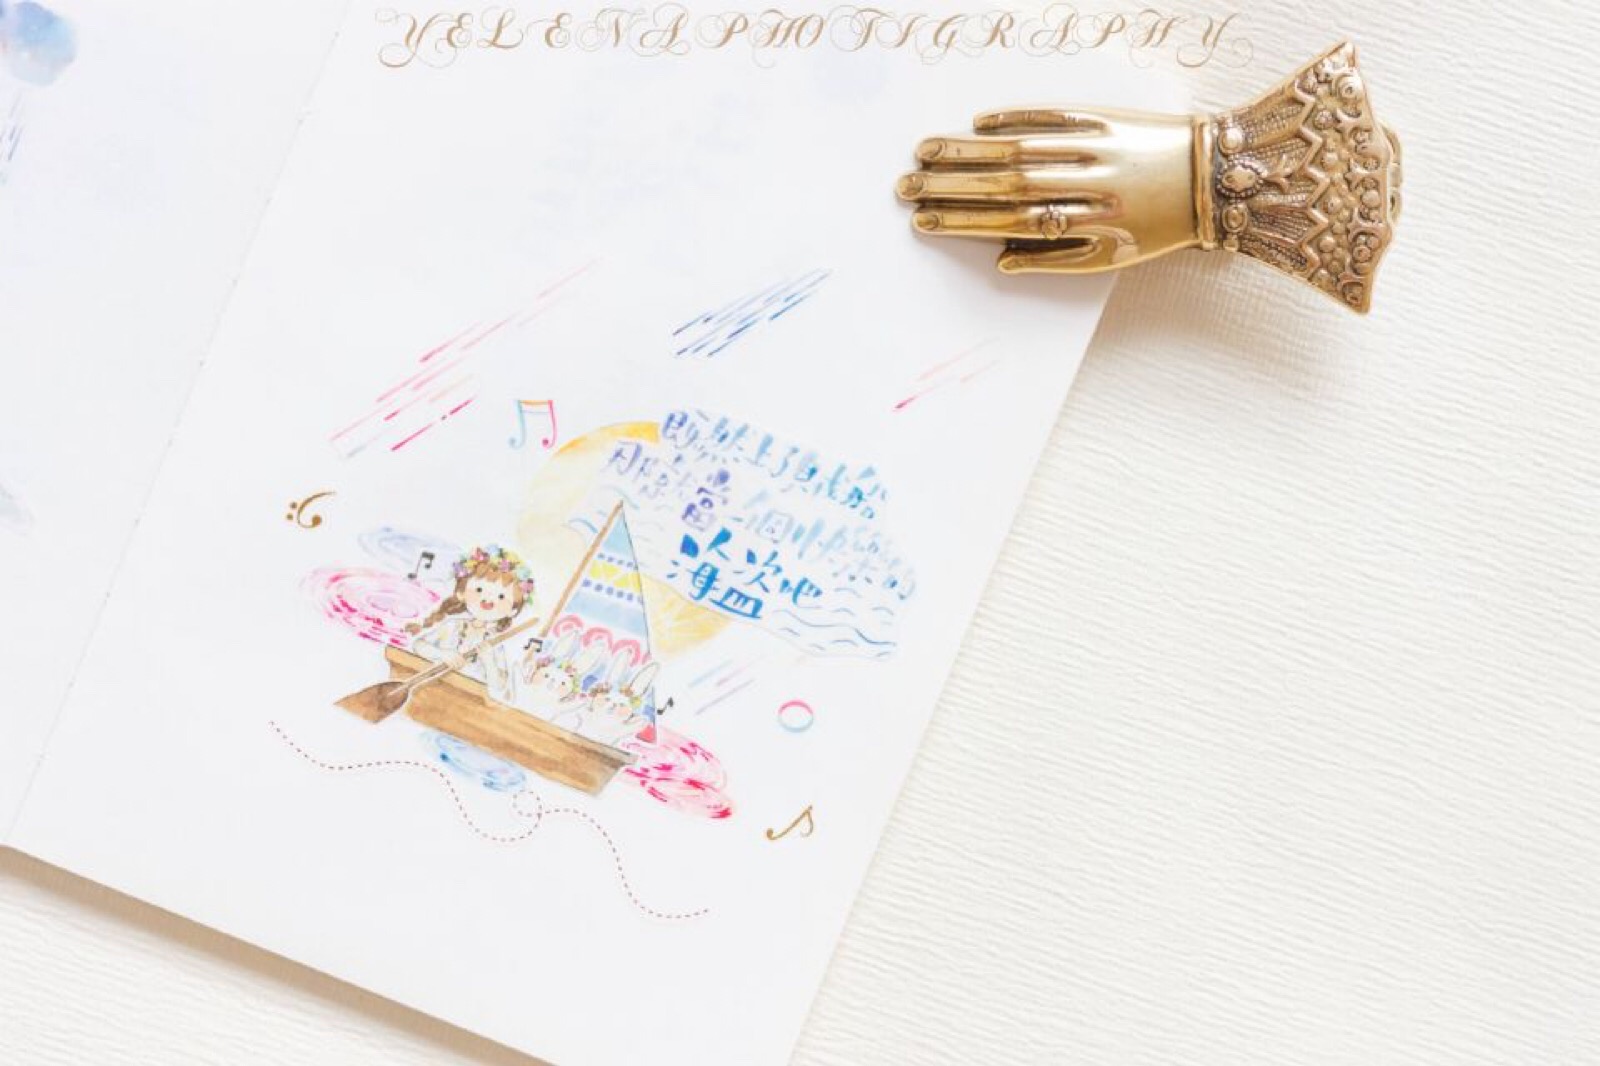 YELENA PHOTIGRAPHY
既然上了賊船
那就當一個快樂的
海盜吧